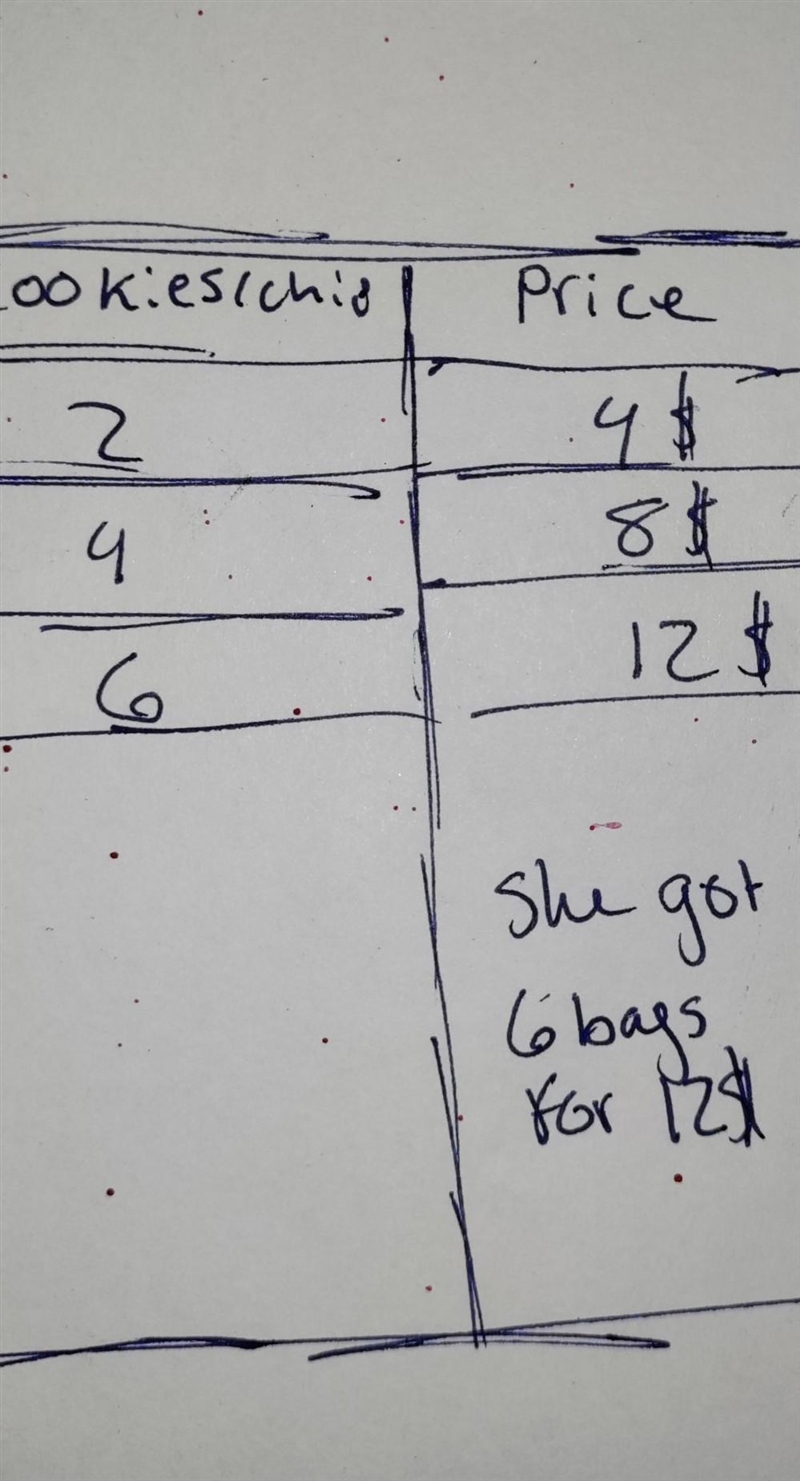 ookies/chis Price
2 4$
4 8$
6 12$
She got
6 bags
for 12$